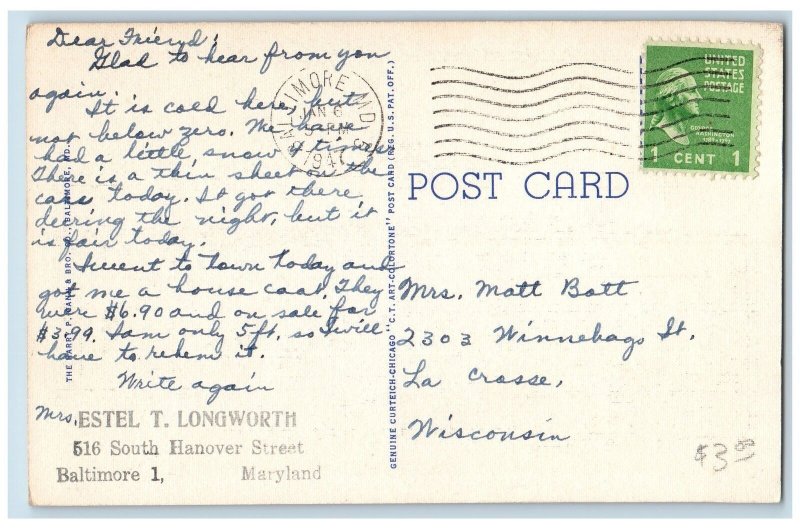 Dear Friend:
Glad to hear from you
again.
It is cold here, but
not below zero. We have
had a little snow 4 times.
There is a thin sheet on the
cars today. It got there
during the night, but it
is fair today.
I went to town today and
got me a house coat. They
were $6.90 and on sale for
$3.99. I am only 5ft, so I will
have to rehem it.
Write again
Mrs. ESTEL T. LONGWORTH
516 South Hanover Street
Baltimore 1, Maryland
BALTIMORE MD
JAN 6
PM
194
UNITED
STATES
POSTAGE
GEORGE
WASHINGTON
1 CENT 1
POST CARD
GENUINE CURTEICH-CHICAGO "C.T. ART-COLORTONE" POST CARD (REG. U.S. PAT. OFF.)
Mrs. Matt Bott
2303 Winnebago St.
La Crosse,
Wisconsin
$3.00